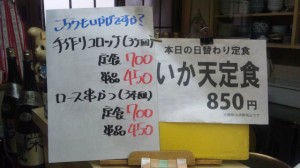 こちらもいかがですか?
手作りコロッケ(3ヶ)
定食 700
単品 450
ロース串かつ(3本)
定食 700
単品 450
本日の日替わり定食
いか天定食
850円